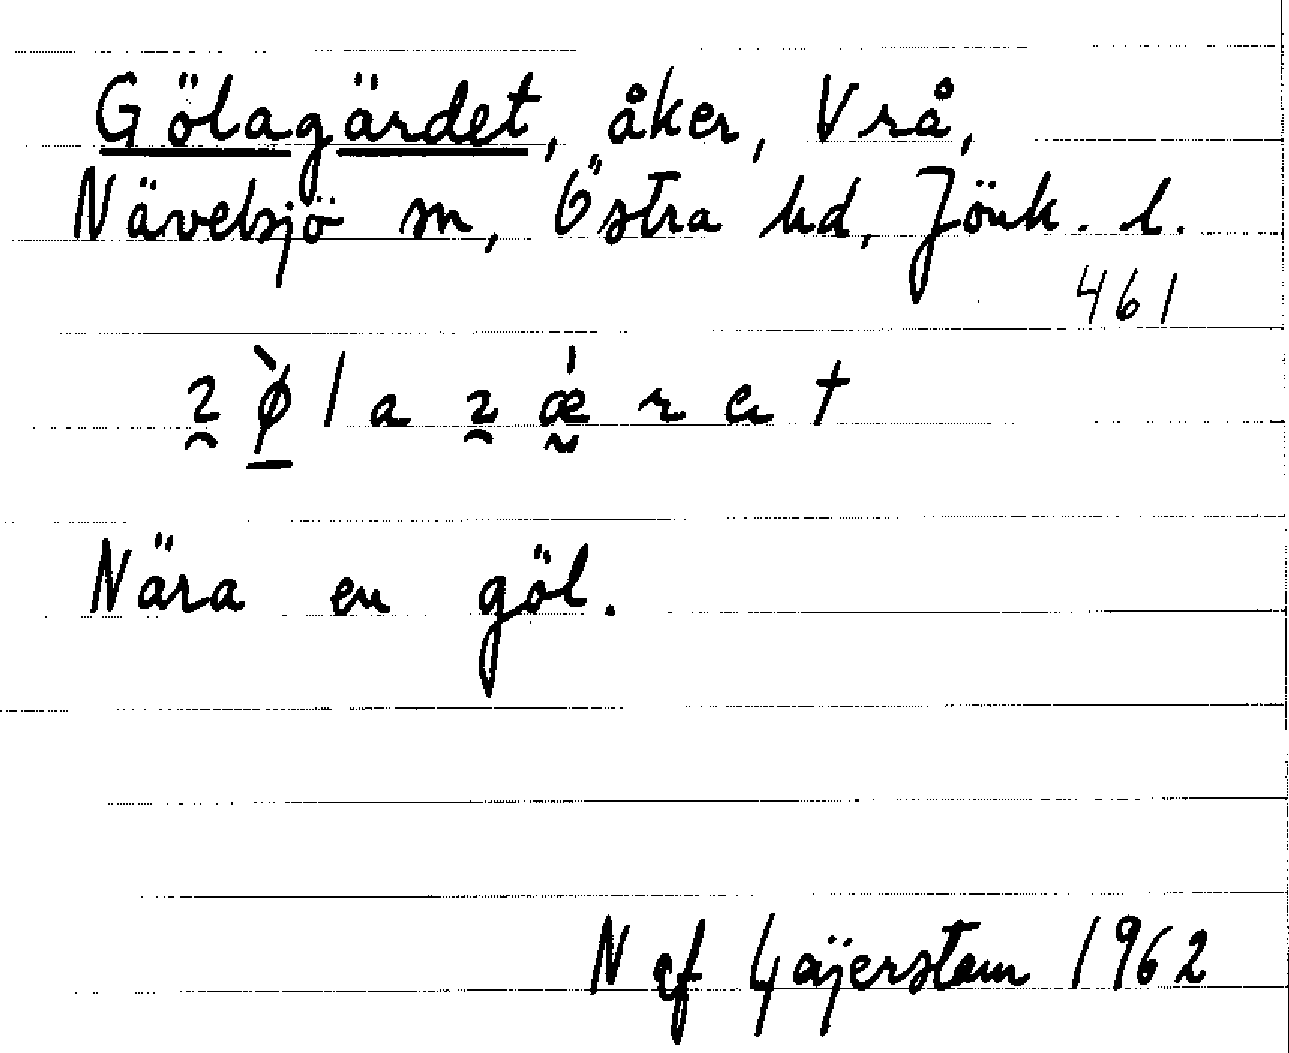 Gölagärdet, åker, Vrå,
Nävelsjö sn, Östra hd, Jönk. l.
461
Nära en göl.
N af Gäijerstam 1962